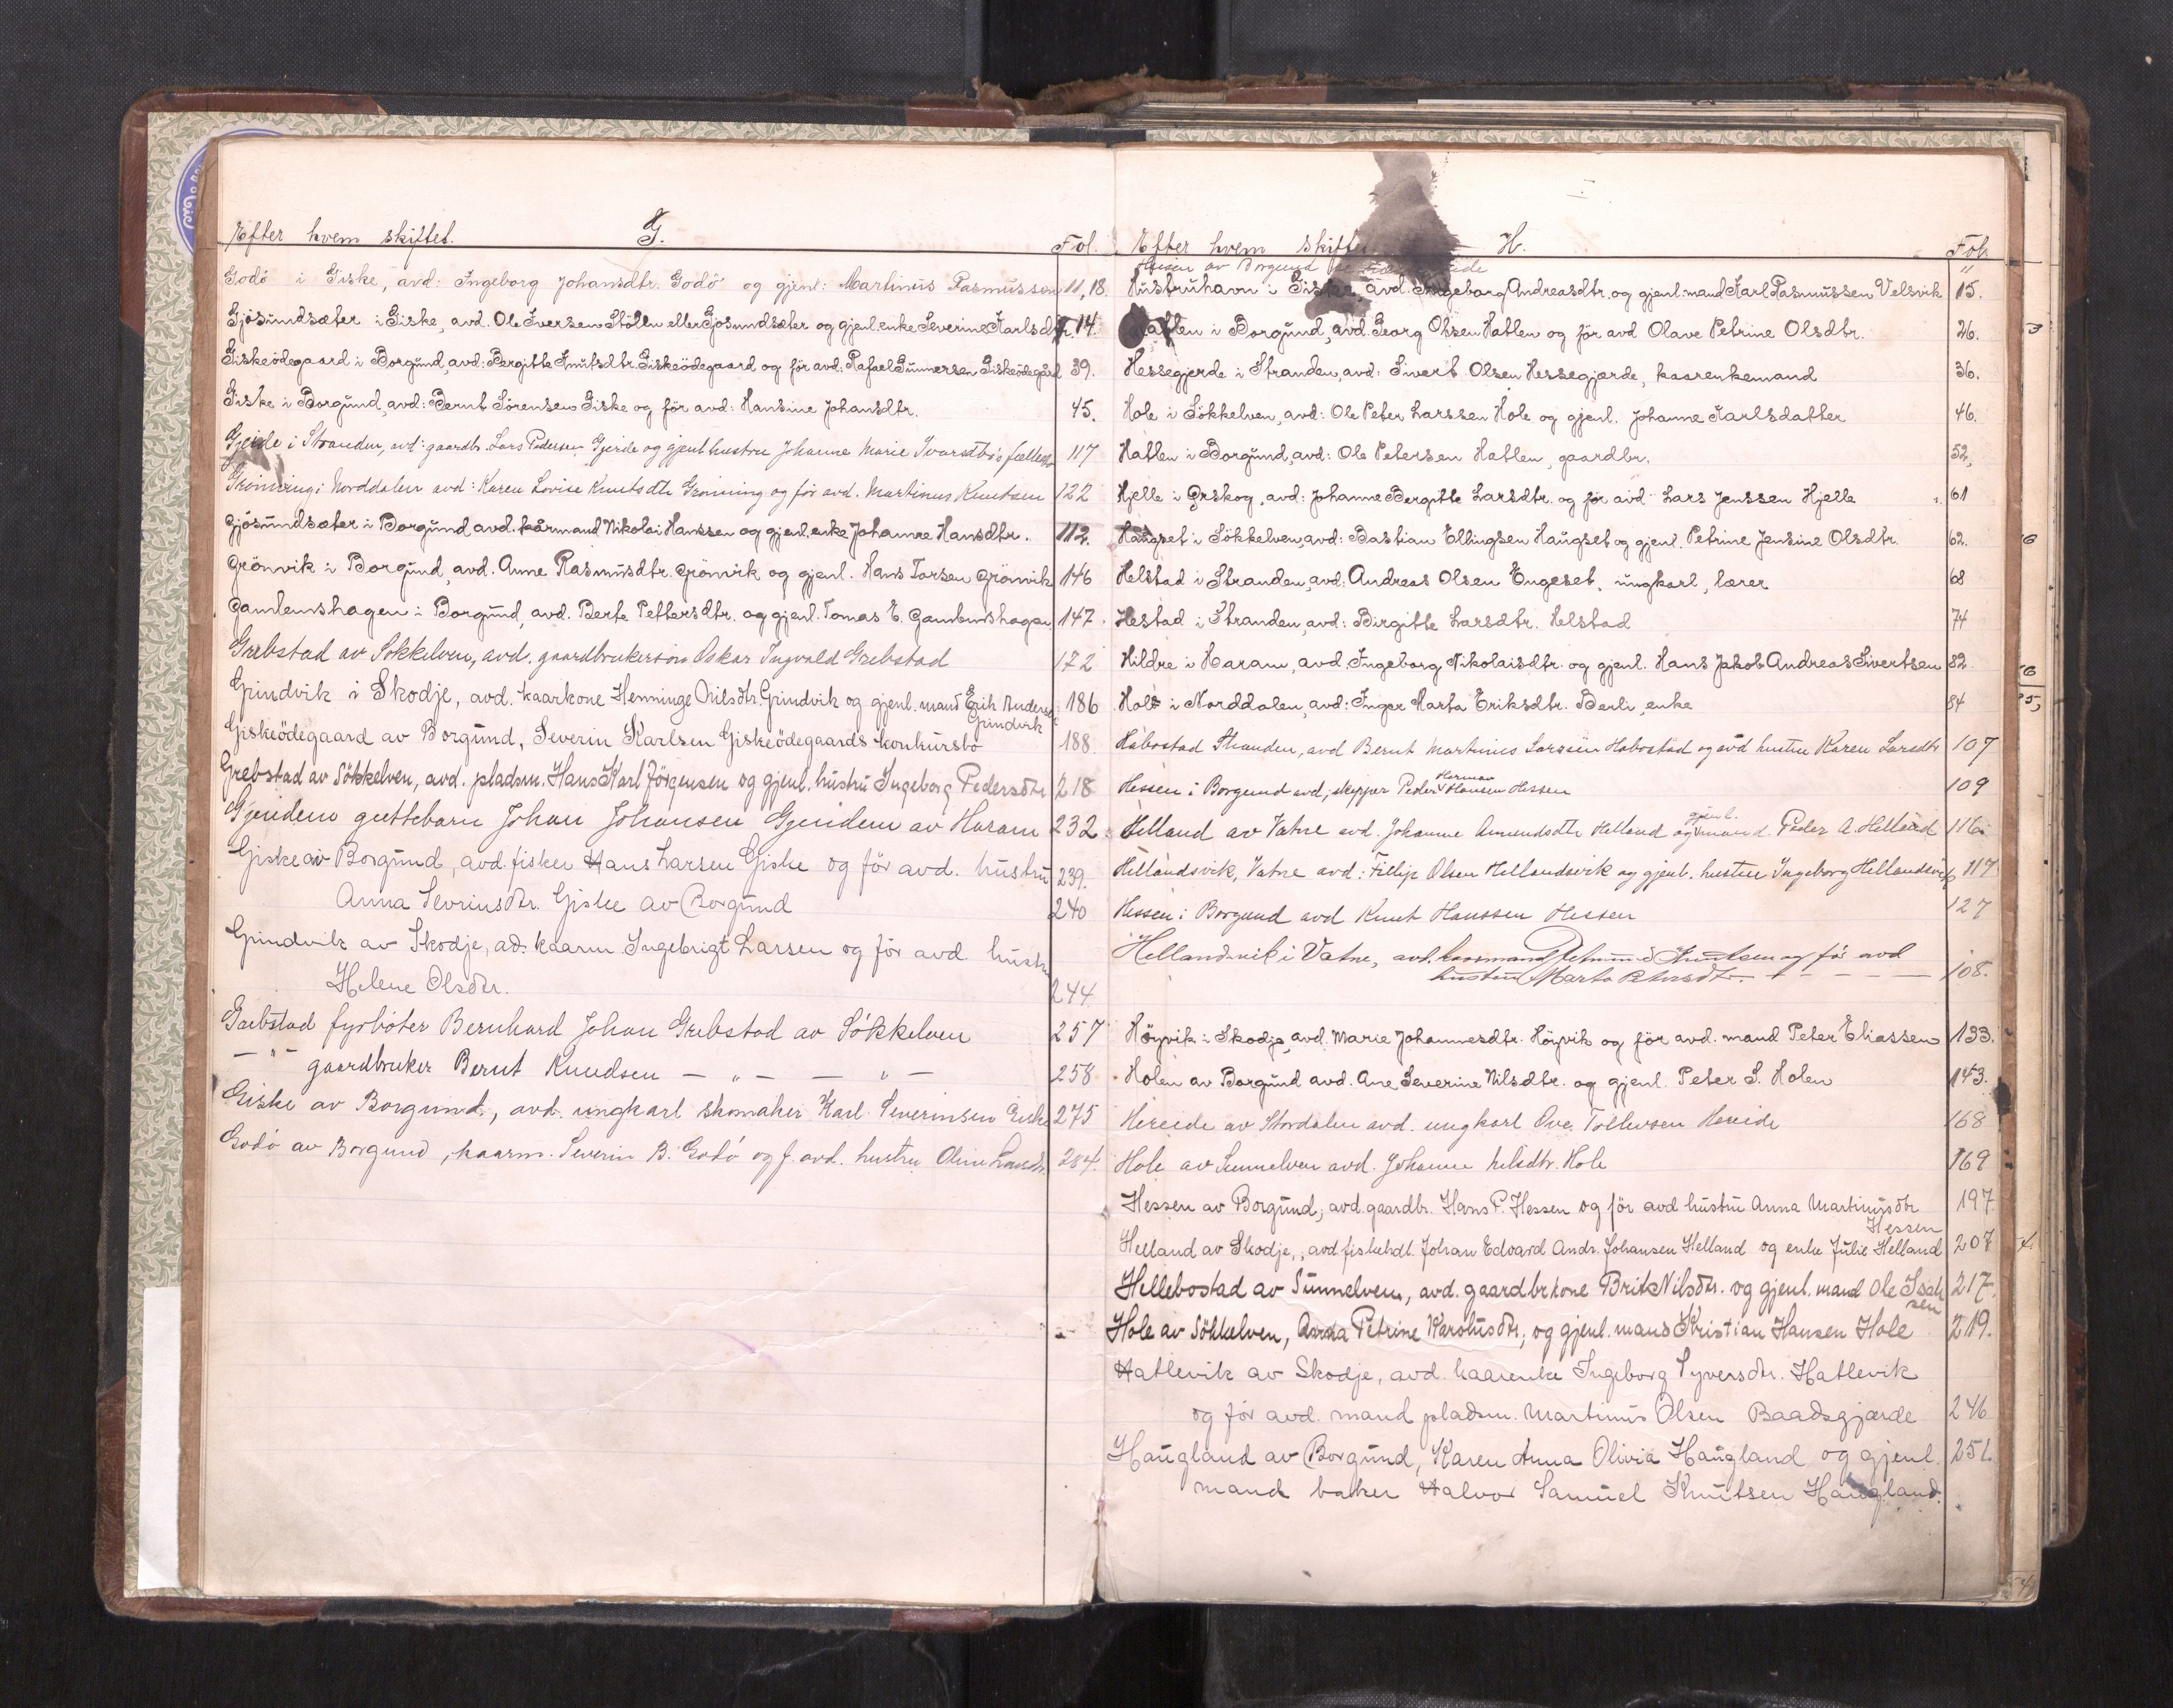 Efter hvem skiftet. G. Fol.
Godö i Giske, avd: Ingeborg Johansdtr. Godö og gjenl: Martinus Rasmussen 11, 18.
Gjösundsæter i Giske, avd. Ole Iversen Stölen eller Gjösundsæter og gjenl. enke Severine Karlsdtr. 14.
Giskeödegaard i Borgund, avd: Bergitte Knutsdtr. Giskeödegaard og för avd: Rafael Gunnersen Giskeödegård 39.
Giske i Borgund, avd: Bernt Sörensen Giske og för avd: Hansine Johansdtr. 45.
Gjerde i Stranden, avd: gaardbr. Lars Pedersen Gjerde og gjenl hustru Johanne Marie Ivarsdtrs fællesbo 117
Grönning i Norddalen avd: Karen Lovise Knutsdtr Grönning og för avd. Martinus Knutsen 122
Gjösundsæter i Borgund avd. kårmand Nikolai Hanssen og gjenl. enke Johanne Hansdtr. 112.
Grönvik i Borgund, avd. Anne Rasmusdtr. Grönvik og gjenl. Hans Larsen Grönvik 146
Gamlemshagen i Borgund, avd. Berte Pettersdtr. og gjenl. Tomas E. Gamlemshagen 147.
Grebstad av Sökkelven, avd. gaardbrukersön Oskar Ingvald Grebstad 172
Grindvik i Skodje, avd. kaarkone Henninge Nilsdtr. Grindvik og gjenl. mand Erik Anders. 186
Grindvik
Giskeödegaard av Borgund, Severin Karlsen Giskeödegaards konkursbo 188.
Grebstad av Sökkelven, avd. pladsm. Hans Karl Jörgensen og gjenl. hustru Ingeborg Pedersdtr 218
Gjendem guttebarn Johan Johansen Gjendem av Haram 232
Giske av Borgund, avd. fisker Hans Larsen Giske og för avd. hustru 239.
Anna Sevrinsdtr. Giske av Borgund 240
Grindvik av Skodje, ad. kaarm. Ingebrigt Larsen og för avd. hustru
Helene Olsdtr. 244
Grebstad fyrböter Bernhard Johan Grebstad av Sökkelven 257
— " — gaardbruker Bernt Knudsen — " — — " — 258
Giske av Borgund, avd. ungkarl skomaker Karl Severinsen Giske 275
Godö av Borgund, kaarm. Severin B. Godö og f. avd. hustru Oline Larsdtr. 284.
Efter hvem skiftet H. Fol.
Hessen av Borgund
Hustruhavn i Giske, avd. Ingeborg Andreasdtr. og gjenl. mand Karl Rasmussen Velsvik 15.
Hatlen i Borgund, avd. Georg Olsen Hatlen og för avd Olave Petrine Olsdtr. 26.
Hessegjerde i Stranden, avd: Sivert Olsen Hessegjærde, kaarenkemand 36.
Hole i Sökkelven, avd: Ole Peter Larssen Hole og gjenl. Johanne Karlsdatter 46.
Hatlen i Borgund, avd: Ole Petersen Hatlen, gaardbr. 52,
Hjelle i Örskog, avd: Johanne Bergitte Larsdtr. og för avd Lars Jenssen Hjelle 61
Haugset i Sökkelven, avd: Bastian Ellingsen Haugset og gjenl. Petrine Jensine Olsdtr. 62.
Helstad i Stranden, avd: Andreas Olsen Engeset, ungkarl, lærer 68
Helstad i Stranden, avd: Birgitte Larsdtr. Helstad 74
Hildre i Haram, avd. Ingeborg Nikolaisdtr. og gjenl. Hans Jakob Andreas Sivertsen 82
Hole i Norddalen, avd: Inger Marta Eriksdtr. Berli, enke 84
Habostad Stranden, avd Bernt Martinus Larssen Habostad og avd hustru Karen Larsdtr 107
Hessen i Borgund avd, skipper Peder Herman Hansen Hessen 109
Helland av Vatne avd. Johanne Amundsdtr Helland og gjenl. mand Peder A. Helland 116
Hellandsvik, Vatne avd: Fillip Olsen Hellandsvik og gjenl. hustru Ingeborg Hellandsvik 117
Hessen i Borgund avd Knut Hanssen Hessen 127
Hellandsvik i Vatne, avd. kaarmand Knutsen og för avd
hustru Marta Petersdtr. — — — — 108.
Höyvik i Skodje, avd. Marie Johannesdtr. Höyvik og för avd. mand Peter Eliassen 133.
Holen av Borgund avd. Ane Severine Nilsdtr. og gjenl. Peter S. Holen 143.
Hereide av Stordalen avd. ungkarl Ove Tollevsen Hereide 168
Hole av Sunnelven avd. Johanne Nilsdtr. Hole 169
Hessen av Borgund, avd. gaardbr. Hans P. Hessen og för avd hustru Anna Martinusdtr 197
Hessen
Helland av Skodje, avd fiskehdl. Johan Edvard Andr. Johansen Helland og enke Julie Helland 207
Hellebostad av Sunnelven, avd. gaardbrkone Brit Nilsdtr. og gjenl. mand Ole Isak 217.
sen
Hole av Sökkelven, Anna Petrine Karolusdtr, og gjenl. mand Kristian Hansen Hole 219.
Hatlevik av Skodje, avd. kaarenke Ingeborg Syversdtr. Hatlevik
og för avd. mand pladsm. Martinus Olsen Baadsgjærde 246
Haugland av Borgund, Karen Anna Olivia Haugland og gjenl. 251
mand baker Halvor Samuel Knutsen Haugland.